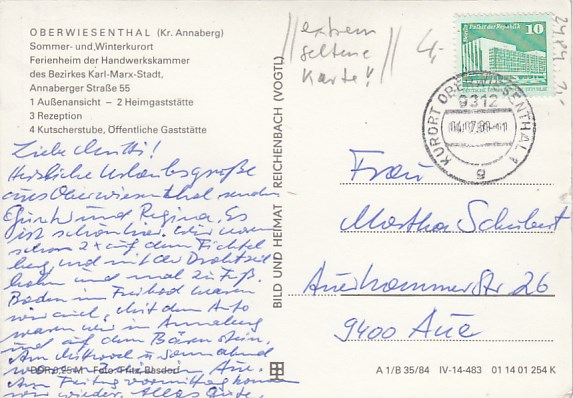 OBERWIESENTHAL (Kr. Annaberg)
Sommer- und Winterkurort
Ferienheim der Handwerkskammer
des Bezirkes Karl-Marx-Stadt,
Annaberger Straße 55
1 Außenansicht – 2 Heimgaststätte
3 Rezeption
4 Kutscherstube, Öffentliche Gaststätte
Liebe Mutti!
Herzliche Urlaubsgrüße
aus Oberwiesenthal senden
und Regina. Es
ist schön hier. Wir waren
schon 2x auf dem Fichtel
berg und mit der Drahtseil
bahn und mal zu Fuß.
Baden im Freibad waren
wir auch, mit dem Auto
waren wir in Annaberg
und auf dem Bärenstein.
Am Mittwoch u. Sonnabend
waren in Aue.
Am Freitag vormittag kommen
wir wieder. Alles Gute,
DDR 0,95 M Foto: Fritz Basdorf
BILD UND HEIMAT REICHENBACH (VOGTL)
extrem
seltene
Karte!
4,-
Palast der Republik
10
KURORT OBERWIESENTHAL 1
9312
g
Frau
Martha Schubert
Auerhammerstr 26
9400 Aue
A 1/B 35/84 IV-14-483 01 14 01 254 K